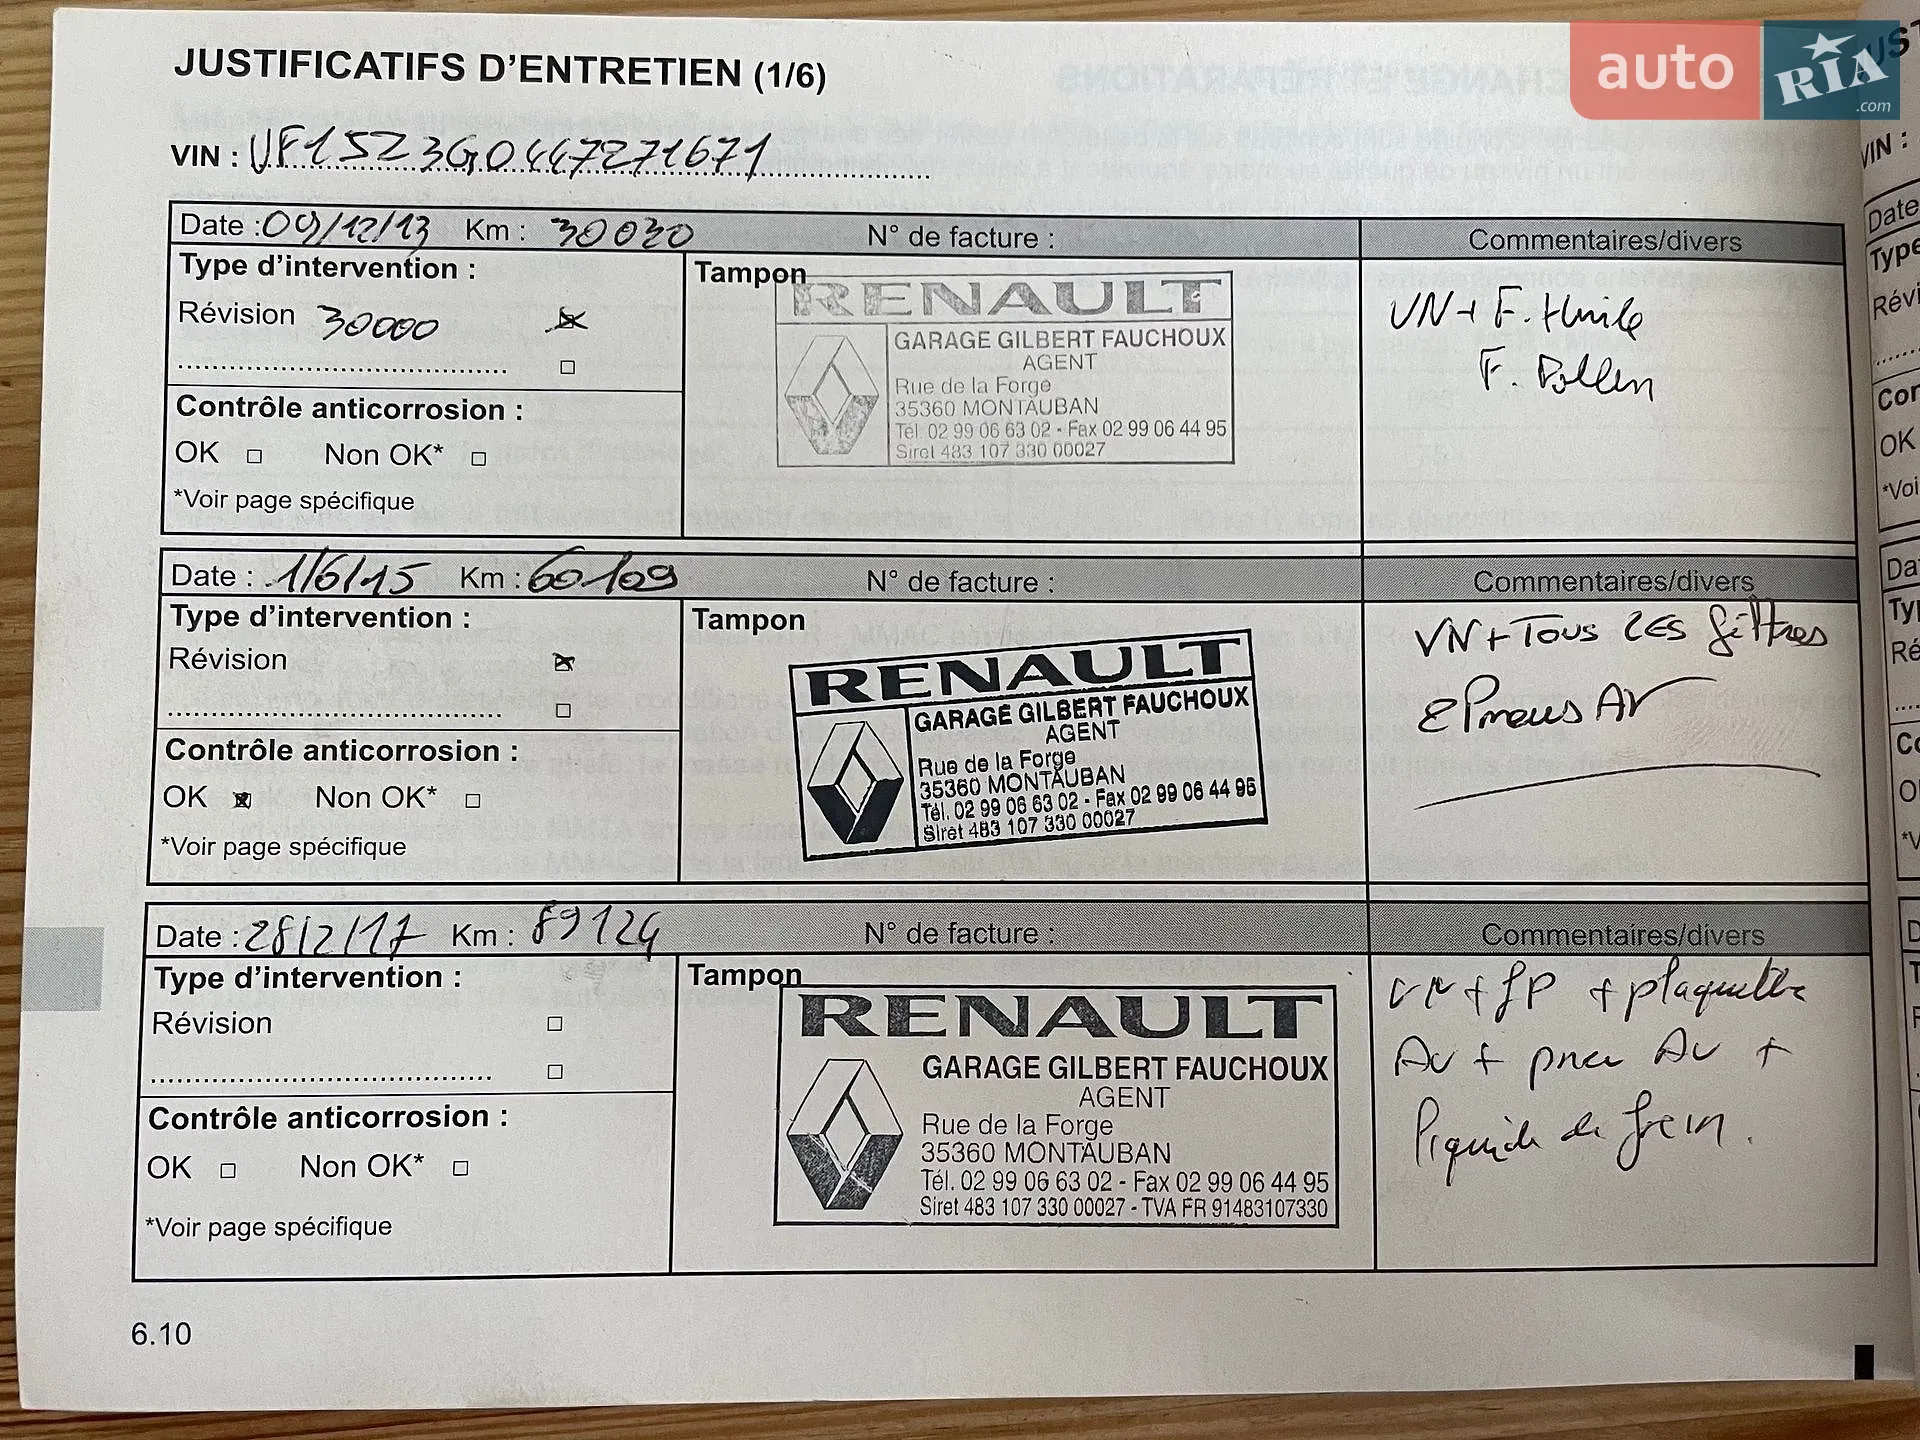 JUSTIFICATIFS D'ENTRETIEN (1/6)
auto RIA .com
VIN : VF15Z3G0447271671
Date : 09/12/13 Km : 30030 N° de facture : Commentaires/divers
Type d'intervention :
Révision 30000
Contrôle anticorrosion :
OK Non OK*
*Voir page spécifique
Tampon
RENAULT
GARAGE GILBERT FAUCHOUX
AGENT
Rue de la Forge
35360 MONTAUBAN
Tél. 02 99 06 63 02 - Fax 02 99 06 44 95
Siret 483 107 330 00027
VN + F. Huile
F. Pollen
Date : 1/6/15 Km : 60109 N° de facture : Commentaires/divers
Type d'intervention :
Révision
Contrôle anticorrosion :
OK Non OK*
*Voir page spécifique
Tampon
RENAULT
GARAGE GILBERT FAUCHOUX
AGENT
Rue de la Forge
35360 MONTAUBAN
Tél. 02 99 06 63 02 - Fax 02 99 06 44 95
Siret 483 107 330 00027
VN + Tous les filtres
2 Pneus AV
Date : 28/2/17 Km : 89124 N° de facture : Commentaires/divers
Type d'intervention :
Révision
Contrôle anticorrosion :
OK Non OK*
*Voir page spécifique
Tampon
RENAULT
GARAGE GILBERT FAUCHOUX
AGENT
Rue de la Forge
35360 MONTAUBAN
Tél. 02 99 06 63 02 - Fax 02 99 06 44 95
Siret 483 107 330 00027 - TVA FR 91483107330
VN + FP + plaquettes
AV + pneu AV +
liquide de frein.
6.10
VIN :
Date